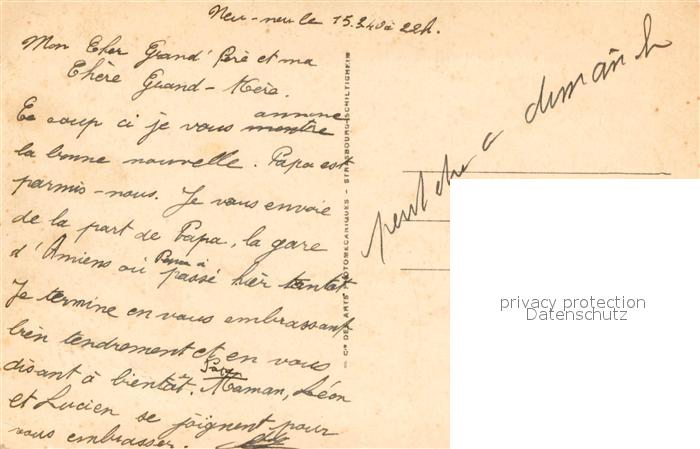 Neu-neu le 15.3.40 à 22h.
Mon Cher Grand'Père et ma
Chère Grand-Mère.
Ce coup ci je vous montre annonce
la bonne nouvelle. Papa est
parmis-nous. Je vous envoie
de la part de Papa, la gare
d'Amiens où Papa à passé hier tantôt
Je termine en vous embrassant
bien tendrement et en vous
disant à bientôt. Papa Maman, Léon
et Lucien se joignent pour
vous embrasser.
peut etre a dimanch
— Cie DES ARTS PHOTOMECANIQUES — STRASBOURG-SCHILTIGHEIM
privacy protection
Datenschutz